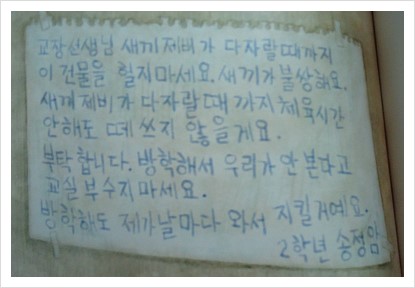 교장선생님 새끼제비가 다자랄때까지
이 건물을 헐지마세요. 새끼가 불쌍해요.
새끼제비가 다자랄때까지 체육시간
안해도 떼쓰지 않을게요.
부탁합니다. 방학해서 우리가 안 본다고
교실 부수지마세요.
방학하도 제가날마다 와서 지킬거예요.
2학년 송정암